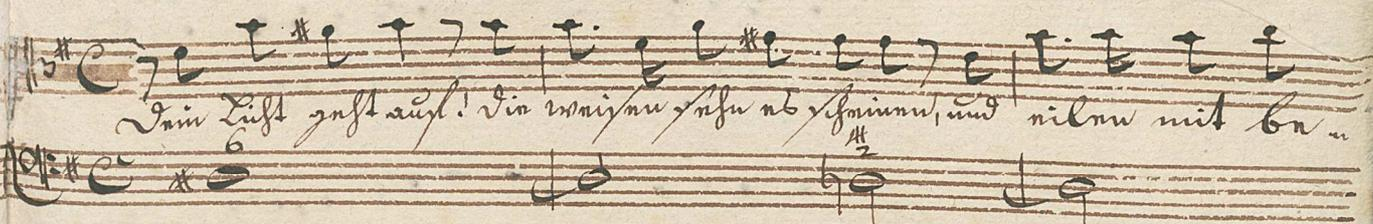 Dein Licht geht auf! die weisen sehn es scheinen, und eilen mit be=
6 4 2